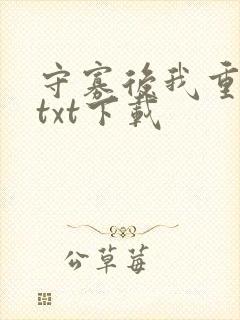 守寡後我重
txt下載
公草莓